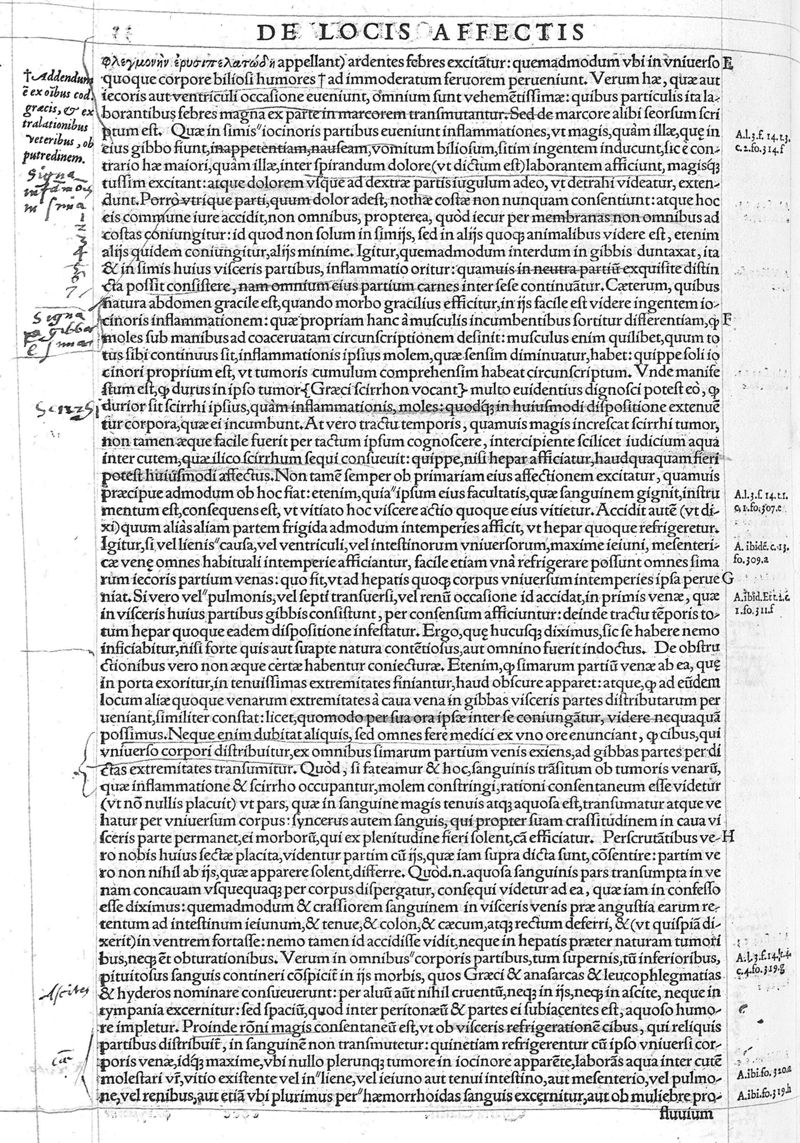 DE LOCIS AFFECTIS
φλεγμονὴν ἐρυσιπελατώδη appellant) ardentes febres excitãtur: quemadmodum vbi in vniuerso E
quoque corpore biliosi humores † ad immoderatum feruorem perueniunt. Verum hæ, quæ aut
iecoris aut ventriculi occasione eueniunt, omnium sunt vehemẽtissimæ: quibus particulis ita la-
borantibus febres magna ex parte in marcorem transmutantur. Sed de marcore alibi seorsum scri
ptum est. Quæ in simis" iocinoris partibus eueniunt inflammationes, vt magis, quàm illæ, quę in
eius gibbo fiunt, inappetentiam, nauseam, vomitum biliosum, sitim ingentem inducunt, sic è con-
trario hæ maiori, quàm illæ, inter spirandum dolore (vt dictum est) laborantem afficiunt, magisq;
tussim excitant: atque dolorem vsque ad dextræ partis iugulum adeo, vt detrahi videatur, exten-
dunt. Porrò vtrique parti, quum dolor adest, nothæ costæ non nunquam consentiunt: atque hoc
eis commune iure accidit, non omnibus, propterea, quòd iecur per membranas non omnibus ad
costas coniungitur: id quod non solum in simijs, sed in alijs quoq; animalibus videre est, etenim
alijs quidem coniungitur, alijs minime. Igitur, quemadmodum interdum in gibbis duntaxat, ita
& in simis huius visceris partibus, inflammatio oritur: quamuis in neutra partiũ exquisite distin
cta possit consistere, nam omnium eius partium carnes inter sese continuãtur. Cæterum, quibus
natura abdomen gracile est, quando morbo gracilius efficitur, in ijs facile est videre ingentem io-
cinoris inflammationem: quæ propriam hanc à musculis incumbentibus sortitur differentiam, ꝙ F
moles sub manibus ad coaceruatam circunscriptionem desinit: musculus enim quilibet, quum to
tus sibi continuus sit, inflammationis ipsius molem, quæ sensim diminuatur, habet: quippe soli io
cinori proprium est, vt tumoris cumulum comprehensim habeat circunscriptum. Vnde manife
stum est, ꝙ durus in ipso tumor {Græci scirrhon vocant} multo euidentius dignosci potest eò, ꝙ
durior sit scirrhi ipsius, quàm inflammationis, moles: quodq; in huiusmodi dispositione extenuẽ
tur corpora, quæ ei incumbunt. At vero tractu temporis, quamuis magis increscat scirrhi tumor,
non tamen æque facile fuerit per tactum ipsum cognoscere, intercipiente scilicet iudicium aqua
inter cutem, quæ ilico scirrhum sequi consueuit: quippe, nisi hepar afficiatur, haudquaquam fieri
potest huiusmodi affectus. Non tamẽ semper ob primariam eius affectionem excitatur, quamuis
præcipue admodum ob hoc fiat: etenim, quia" ipsum eius facultatis, quæ sanguinem gignit, instru
mentum est, consequens est, vt vitiato hoc viscere actio quoque eius vitietur. Accidit autẽ (vt di-
xi) quum aliàs aliam partem frigida admodum intemperies afficit, vt hepar quoque refrigeretur.
Igitur, si vel lienis" causa, vel ventriculi, vel intestinorum vniuersorum, maxime ieiuni, mesenteri-
cæ venę omnes habituali intemperie afficiantur, facile etiam vnà refrigerare possunt omnes sima
rum iecoris partium venas: quo fit, vt ad hepatis quoq; corpus vniuersum intemperies ipsa perue G
niat. Si vero vel" pulmonis, vel septi transuersi, vel renũ occasione id accidat, in primis venæ, quæ
in visceris huius partibus gibbis consistunt, per consensum afficiuntur: deinde tractu tẽporis to-
tum hepar quoque eadem dispositione infestatur. Ergo, quę hucusq; diximus, sic se habere nemo
inficiabitur, nisi forte quis aut suapte natura contẽtiosus, aut omnino fuerit indoctus. De obstru
ctionibus vero non æque certæ habentur coniecturæ. Etenim, ꝙ simarum partiũ venæ ab ea, quę
in porta exoritur, in tenuissimas extremitates finiantur, haud obscure apparet: atque, ꝙ ad eũdem
locum aliæ quoque venarum extremitates à caua vena in gibbas visceris partes distributarum per
ueniant, similiter constat: licet, quomodo per sua ora ipsæ inter se coniungãtur, videre nequaquã
possimus. Neque enim dubitat aliquis, sed omnes fere medici ex vno ore enunciant, ꝙ cibus, qui
vniuerso corpori distribuitur, ex omnibus simarum partium venis exiens, ad gibbas partes per di
ctas extremitates transumitur. Quòd, si fateamur & hoc, sanguinis trãsitum ob tumoris venarũ,
quæ inflammatione & scirrho occupantur, molem constringi, rationi consentaneum esse videtur
(vt nõ nullis placuit) vt pars, quæ in sanguine magis tenuis atq; aquosa est, transumatur atque ve
hatur per vniuersum corpus: syncerus autem sanguis, qui propter suam crassitudinem in caua vi
sceris parte permanet, ei morborũ, qui ex plenitudine fieri solent, cã efficiatur. Perscrutãtibus ve- H
ro nobis huius sectæ placita, videntur partim cũ ijs, quæ iam supra dicta sunt, cõsentire: partim ve
ro non nihil ab ijs, quæ apparere solent, differre. Quòd.n. aquosa sanguinis pars transumpta in ve
nam concauam vsquequaq; per corpus dispergatur, consequi videtur ad ea, quæ iam in confesso
esse diximus: quemadmodum & crassiorem sanguinem in visceris venis præ angustia earum re-
tentum ad intestinum ieiunum, & tenue, & colon, & cæcum, atq; rectum deferri, & (vt quispiã di-
xerit) in ventrem fortasse: nemo tamen id accidisse vidit, neque in hepatis præter naturam tumori
bus, neq; ẽt obturationibus. Verum in omnibus" corporis partibus, tum supernis, tũ inferioribus,
pituitosus sanguis contineri cõspicit in ijs morbis, quos Græci & anasarcas & leucophlegmatias
& hyderos nominare consueuerunt: per aluũ aũt nihil cruentũ, neq; in ijs, neq; in ascite, neque in
tympania excernitur: sed spaciũ, quod inter peritonæũ & partes ei subiacentes est, aquoso humo-
re impletur. Proinde rõni magis consentaneũ est, vt ob visceris refrigerationẽ cibus, qui reliquis
partibus distribuit, in sanguinẽ non transmutetur: quinetiam refrigerentur cũ ipso vniuersi cor-
poris venæ, idq; maxime, vbi nullo plerunq; tumore in iocinore apparẽte, laborãs aqua inter cutẽ
molestari vr̃, vitio existente vel in" liene, vel ieiuno aut tenui intestino, aut mesenterio, vel pulmo-
ne, vel renibus, aut etiã vbi plurimus per" hæmorrhoidas sanguis excernitur, aut ob muliebre pro-
fluuium
† Addendum
ẽ ex oĩbus cod.
græcis, & ex
tralationibus
veteribus, ob
putredinem.
Signa
in
2
3
4
5
6
7
Signa
gibba
Ascites
A.l.3.f.14.t.3.
c.2.fo.314.f
A.l.3.f.14.t.1.
c.1.fo.307.c
A. ibidẽ.c.13.
fo.309.a
A.ibid.Et t.i.c.
1.fo.311.f
A.l.3.f.14.t.4.
c.4.fo.319.g
A.ibi.fo.320.a
A.ibi.fo.319.h